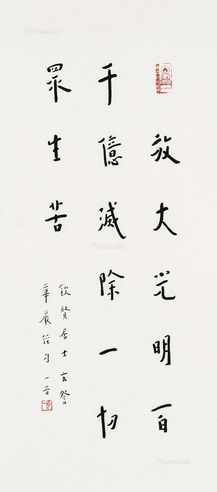 放大光明百
千億滅除一切
眾生苦
欽賢居士玄詧
華嚴經句一音